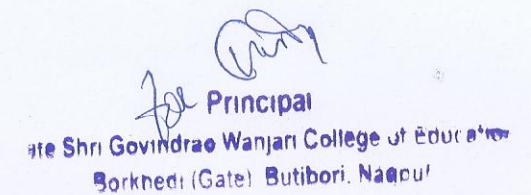 For Principal
ate Shri Govindrao Wanjari College of Education
Borkhedi (Gate) Butibori, Nagpur